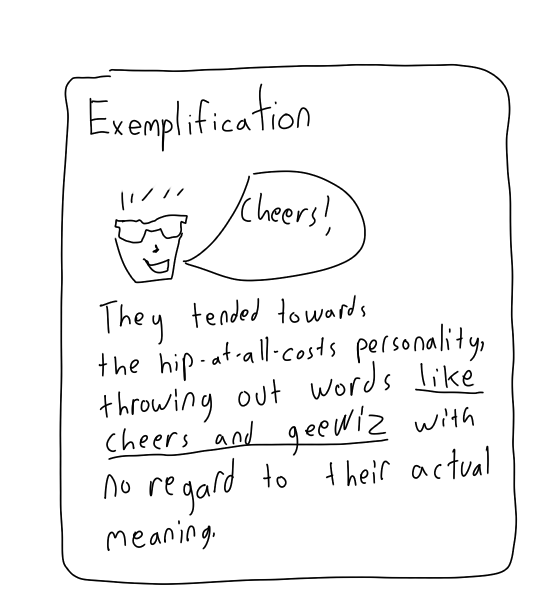 Exemplification
Cheers!
They tended towards
the hip-at-all-costs personality,
throwing out words like
cheers and geewiz with
no regard to their actual
meaning.